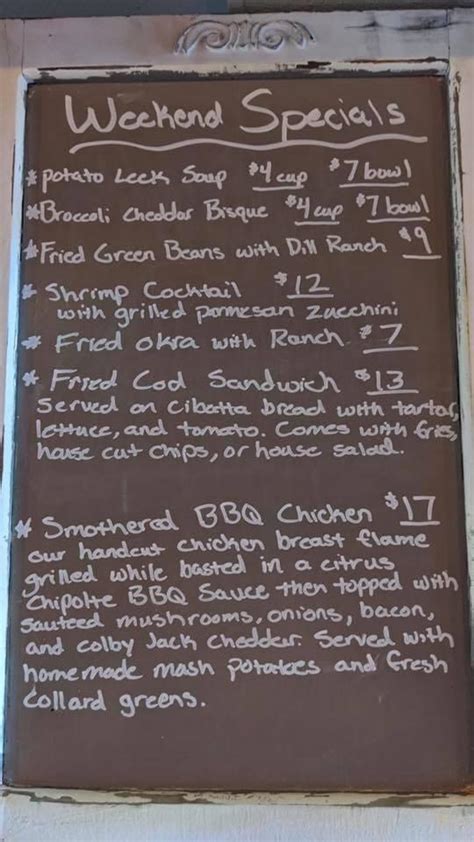 Weekend Specials
* potato Leek Soup $4 cup $7 bowl
* Broccoli Cheddar Bisque $4 cup $7 bowl
* Fried Green Beans with Dill Ranch $9
* Shrimp Cocktail $12
with grilled parmesan Zucchini
* Fried okra with Ranch $7
* Fried Cod Sandwich $13
Served on Cibatta bread with tartar,
lettuce, and tomato. Comes with fries,
house cut chips, or house salad.
* Smothered BBQ Chicken $17
our handcut chicken breast flame
grilled while basted in a citrus
Chipolte BBQ Sauce then topped with
sauteed mushrooms, onions, bacon,
and colby Jack Cheddar. Served with
homemade mash potatoes and fresh
Collard greens.